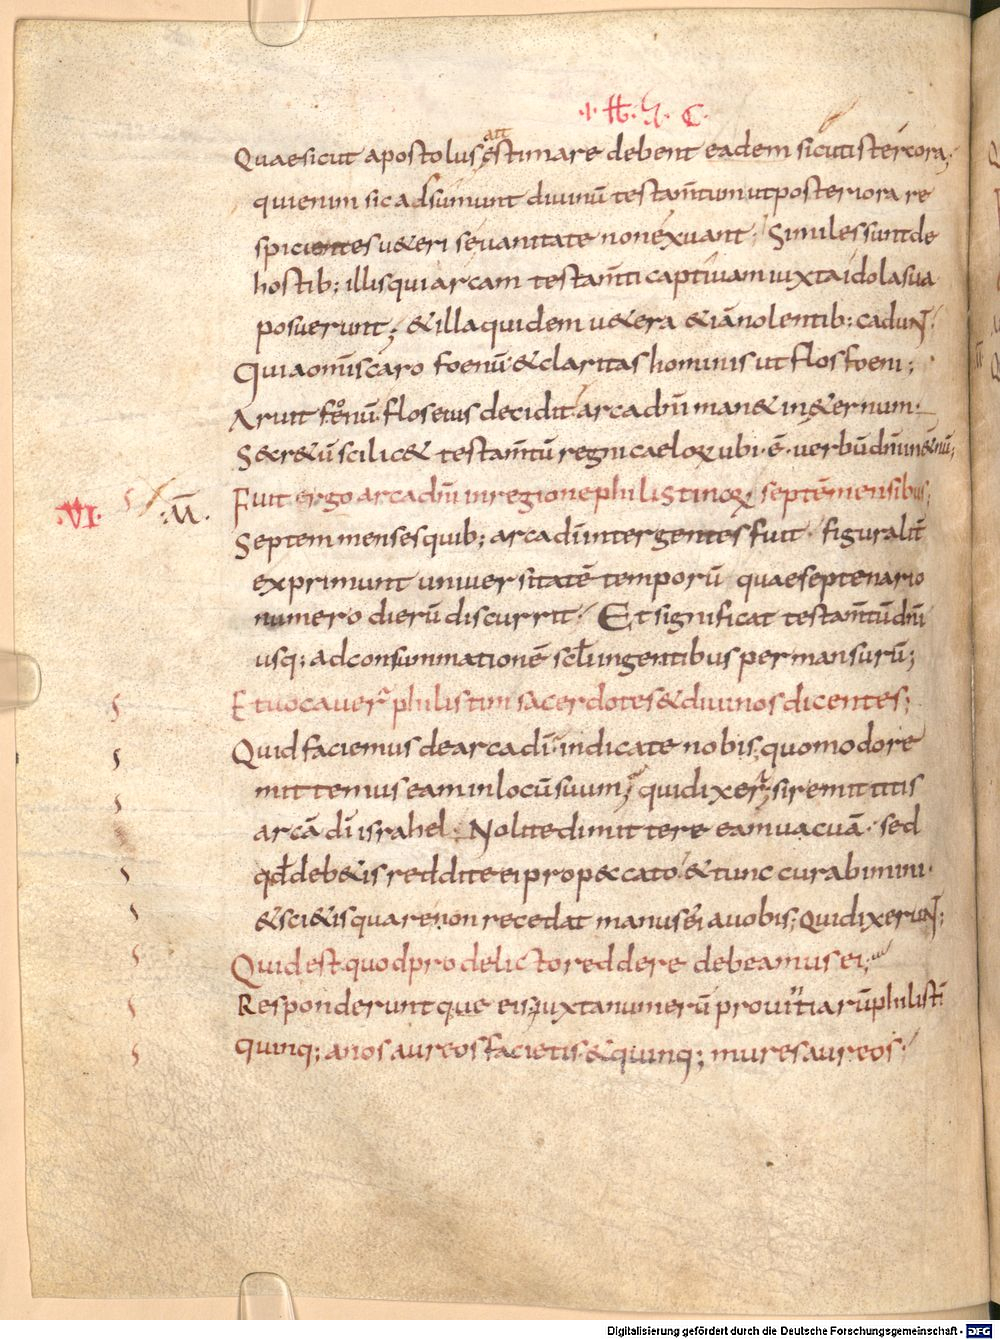 Quae sicut apostolus ęstimare debent eadem sicuti stercora;
qui enim sic adsumunt diuinū testam̄tum ut posteriora re
spicientes u&eri se uanitate non exuant; Similes sunt de
hostib; illis qui arcam testam̄ti captiuam iuxta idola sua
posuerunt; & illa quidem u&era & iā nolentib; cadunt.
Quia om̄is caro foenū & claritas hominis ut flos foeni;
Aruit foenū flos eius decidit arca dn̄i man& in &ernum.
Secr&ū scilic& testam̄tū regni caeloꝝ ubi ē uerbū dn̄i in
·VI· Fuit ergo arca dn̄i in regione philistinoꝝ septē mensibus;
Septem menses quib; arca dī inter gentes fuit figuralit̄
exprimunt uniuersitatē temporū quae septenario
numero dierū discurrit. Et significat testam̄tū dn̄i
usq; ad consummationē scl̄i in gentibus permansurū;
Et uocauer̄ philistim sacerdotes & diuinos dicentes;
Quid faciemus de arca dī indicate nobis quomodo re
mittemus eam in locū suum; qui dixer̄; si remittitis
arcā dī israhel. Nolite dimittere eam uacuā. sed
qd̄ deb&is reddite ei pro pecc&ato & tunc curabimini.
& sci&is quare non recedat manus ei a uobis; Qui dixerunt;
Quid est quod pro delicto reddere debeamus ei;
Responderuntque eis iuxta numerū prouintiarū philistī
quinq; anos aureos facietis & quinq; mures aureos.
Digitalisierung gefördert durch die Deutsche Forschungsgemeinschaft - DFG